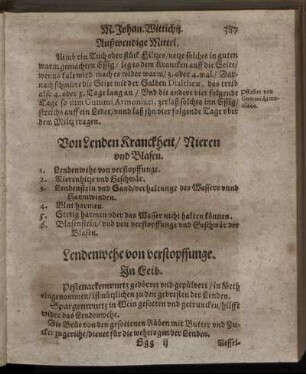 M. Johan. Wittichij.
387
Außwendige Mittel.
Nimb ein Tuch oder stück Filtzes / netze solches in guten
warm gemachten Essig / leg es dem Krancken auff die Seite /
wenns kalt wird mach es wider warm / 3. oder 4. mal / Dar-
nach schmire die Seite mit der Salben Dialthea, das treib
also 4. oder 5. Tage lang an / Und die andere vier folgende
Tage so nim Gummi Armoniaci, zerlaß solches inn Essig /
streichs auff ein Leder / unnd laß ihn vier folgende Tage uber
dem Miltz tragen.
Pflaster von
Gummi Armo-
niaco.
Von Lenden Kranckheit / Nieren
vnd Blasen.
1. Lendenwehe von verstopffunge.
2. Nierenhitze vnd Geschwär.
3. Lendenstein vnd Sand / verhaltunge des Wassers vnnd
Harmwinden.
4. Blut harmen.
5. Stetig harmen oder das Wasser nicht halten können.
6. Blasenstein / vnd von verstopffunge vnd Geschwär der
Blasen.
Lendenwehe von verstopffunge.
In Leib.
Pestnackenwurtz gedörret vnd gepülvert / in Meth
eingenommen / ist nützlichen zu den gebresten der Lenden.
Spargenwurtz in Wein gesotten vnd getruncken / hilfft
wider das Lendenwehe.
Die Brüs von den gesottenen Rüben mit Butter vnd Zu-
cker zugericht / dienet für die wehetagen der Lenden.
ij
Nessel-